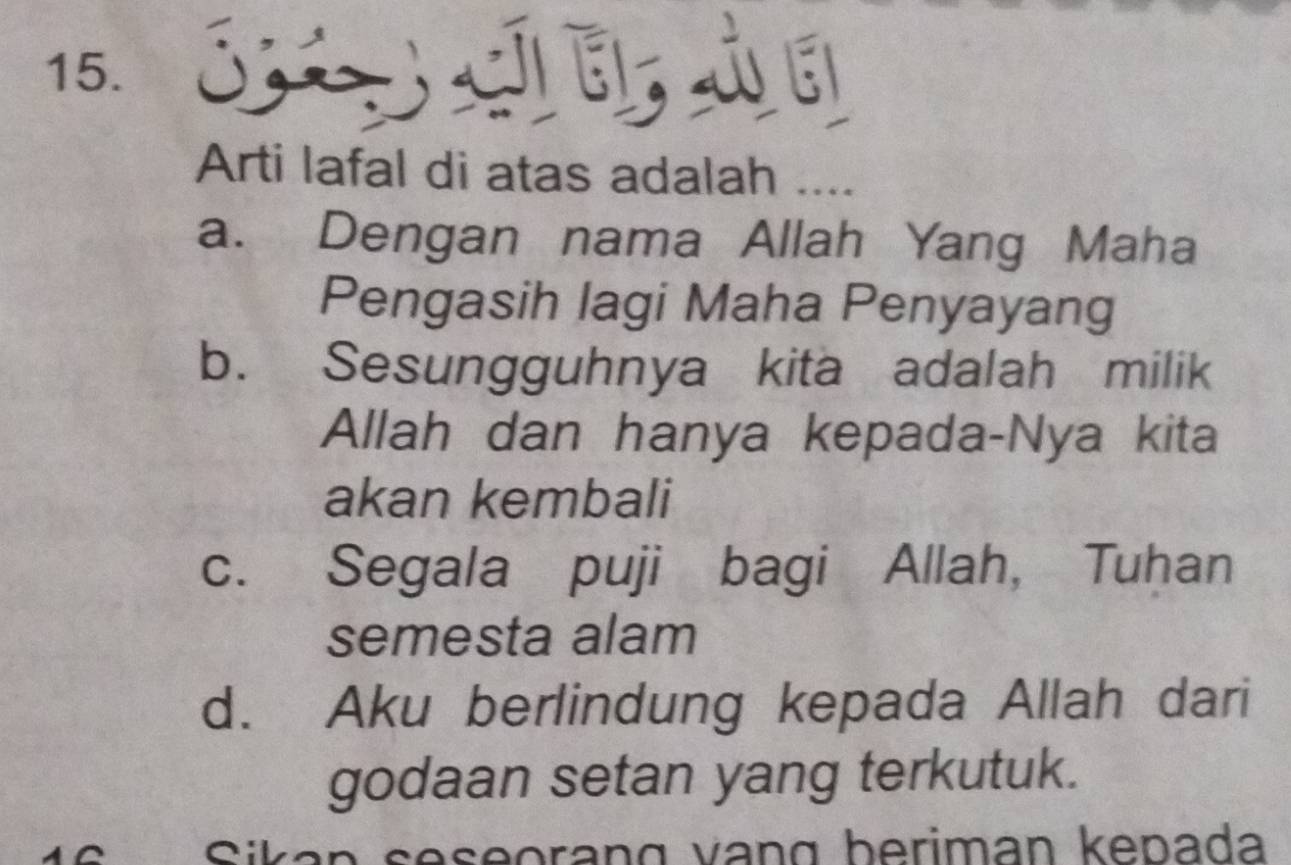 15. اِنَّا لِلّٰهِ وَاِنَّآ اِلَيْهِ رٰجِعُوْنَ
Arti lafal di atas adalah ....
a. Dengan nama Allah Yang Maha
Pengasih lagi Maha Penyayang
b. Sesungguhnya kita adalah milik
Allah dan hanya kepada-Nya kita
akan kembali
c. Segala puji bagi Allah, Tuhan
semesta alam
d. Aku berlindung kepada Allah dari
godaan setan yang terkutuk.
16. Sikap seseorang yang beriman kepada